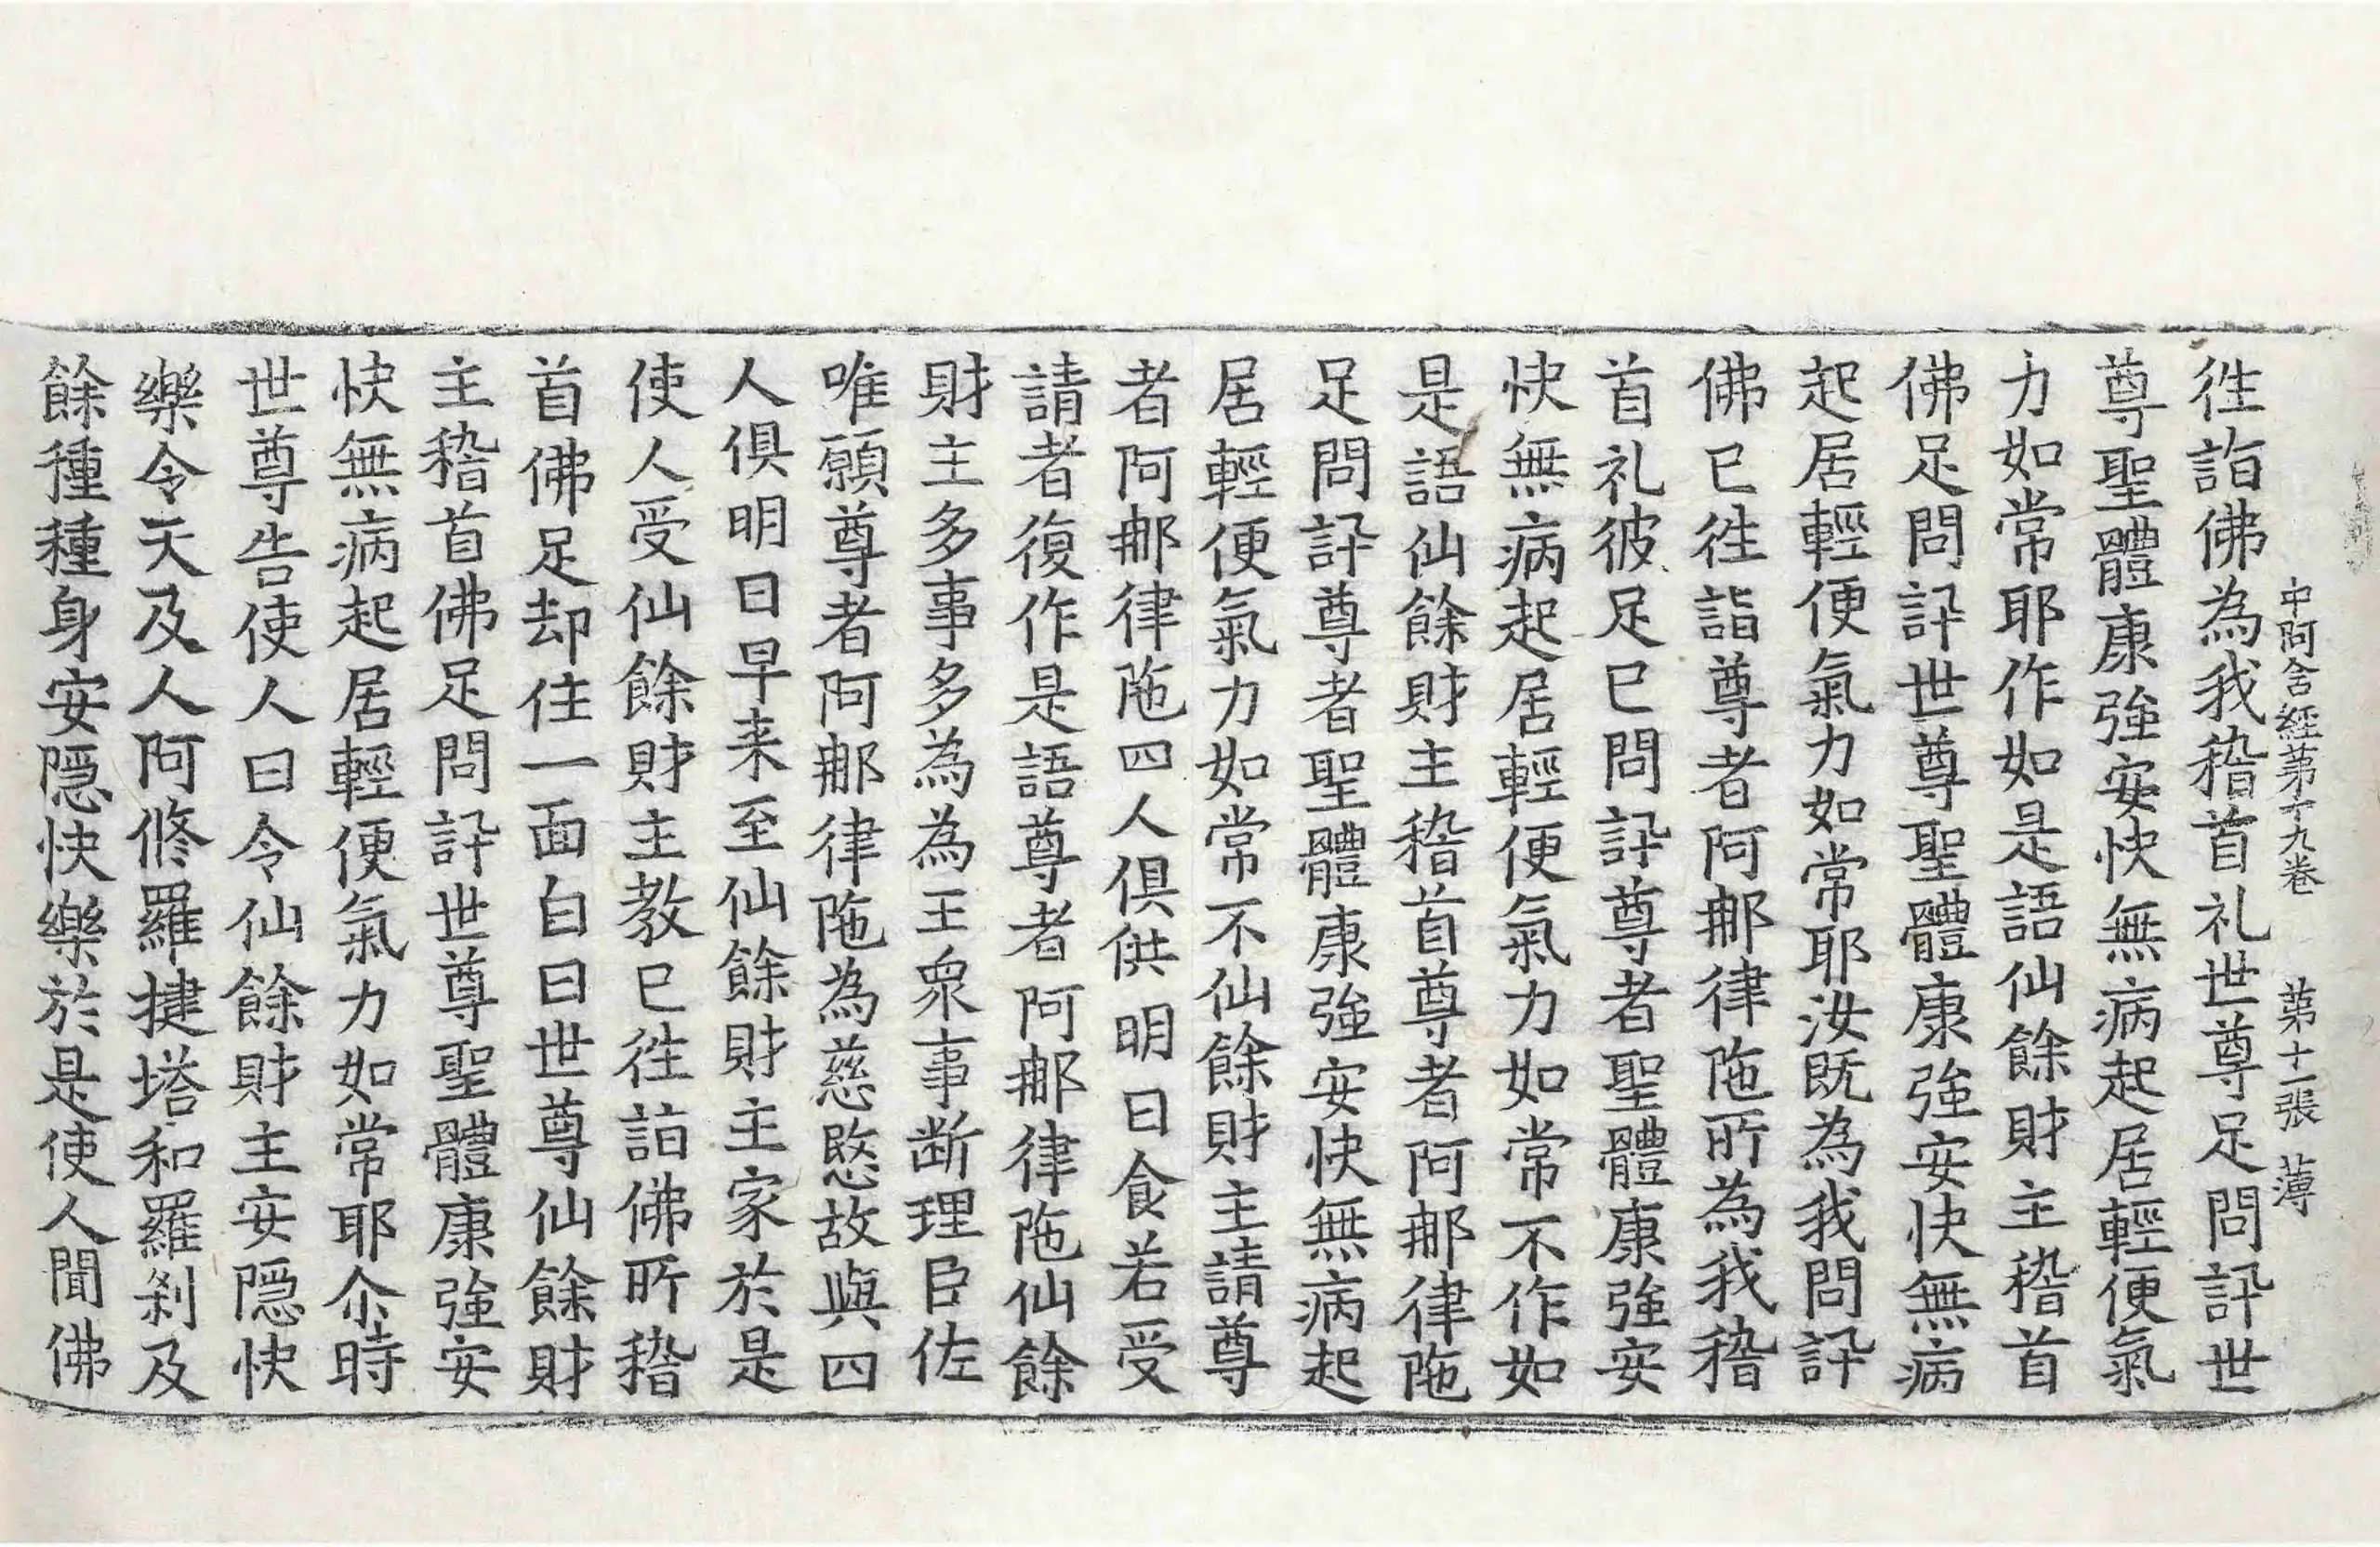 中阿含經第十九卷 第十一張 薄
徃詣佛為我稽首礼世尊足問訊世
尊聖體康強安快無病起居輕便氣
力如常耶作如是語仙餘財主稽首
佛足問訊世尊聖體康強安快無病
起居輕便氣力如常耶汝既為我問訊
佛已徃詣尊者阿那律陁所為我稽
首礼彼足已問訊尊者聖體康強安
快無病起居輕便氣力如常不作如
是語仙餘財主稽首尊者阿那律陁
足問訊尊者聖體康強安快無病起
居輕便氣力如常不仙餘財主請尊
者阿那律陁四人俱供明日食若受
請者復作是語尊者阿那律陁仙餘
財主多事多為為王衆事断理臣佐
唯願尊者阿那律陁為慈愍故與四
人俱明日早来至仙餘財主家於是
使人受仙餘財主教已徃詣佛所稽
首佛足却住一面白曰世尊仙餘財
主稽首佛足問訊世尊聖體康強安
快無病起居輕便氣力如常耶尒時
世尊告使人曰令仙餘財主安隠快
樂令天及人阿修羅揵塔和羅刹及
餘種種身安隠快樂於是使人聞佛